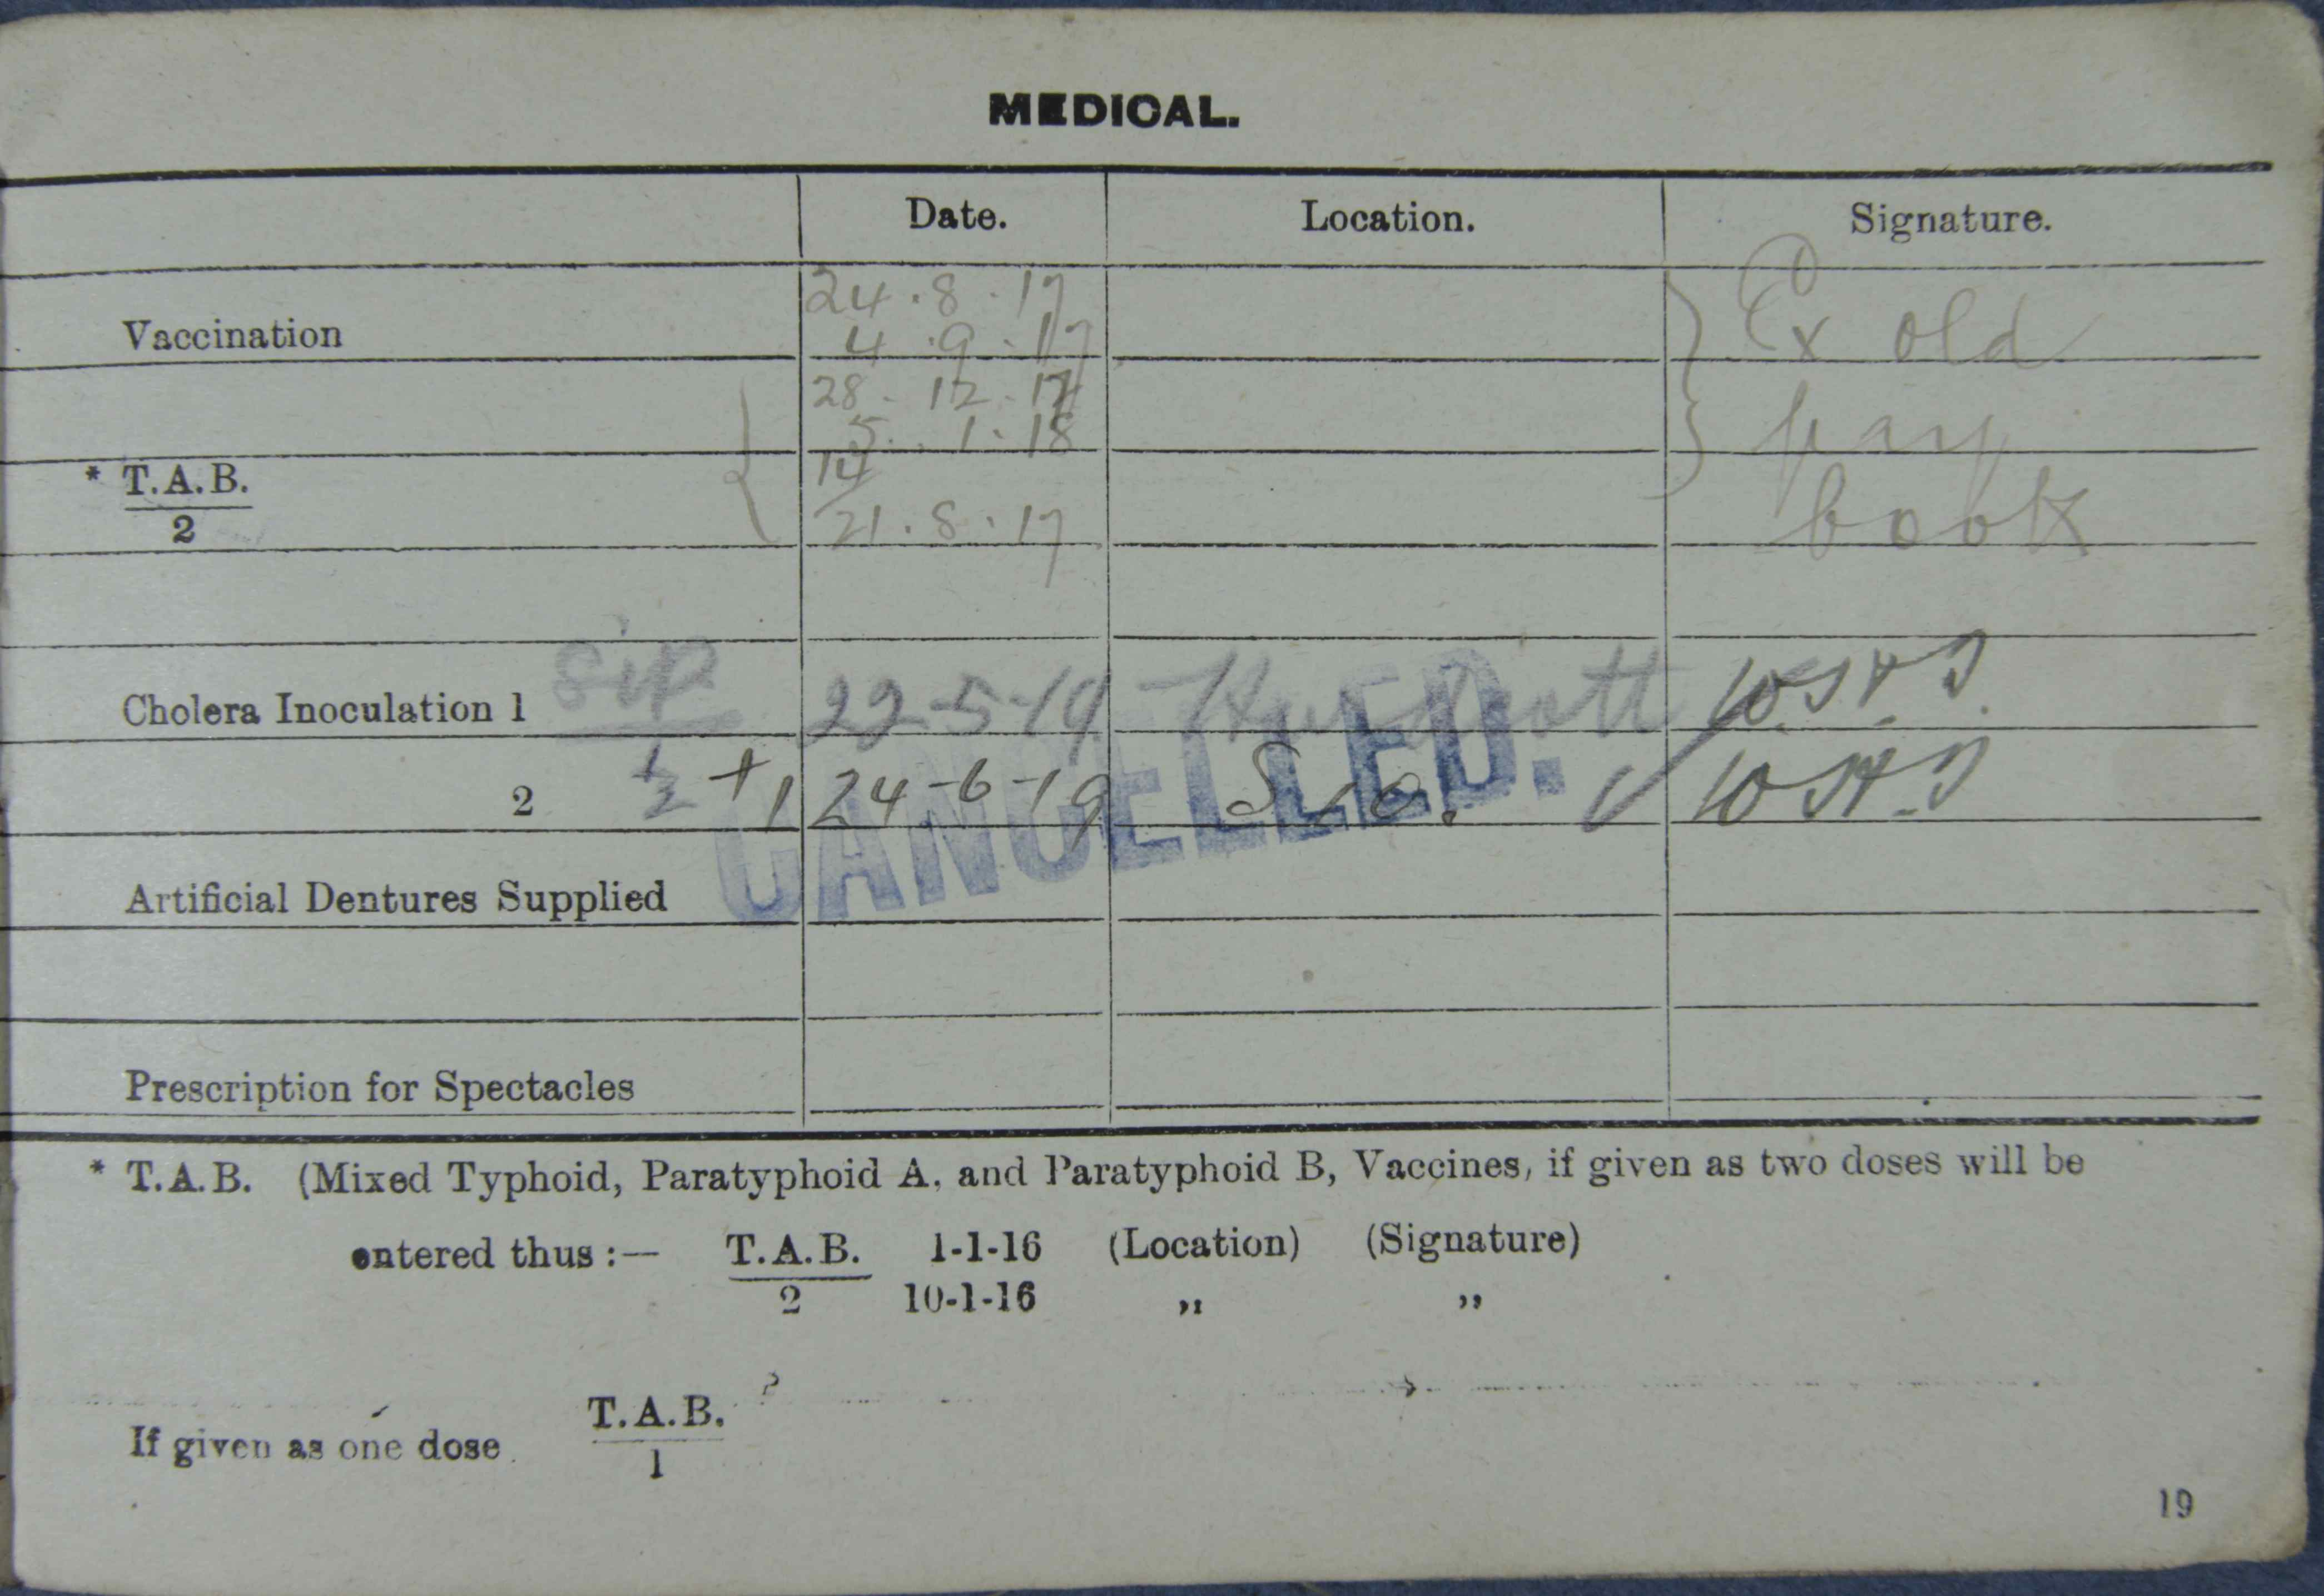 MEDICAL.
Date. Location. Signature.
24.8.17
Vaccination 4.9.17 Ex old
28.12.17
5.1.18 pay
* T.A.B. 14
2 21.8.17 book
Cholera Inoculation 1 22-5-19 Hurdcott
2 1/2 + 1 24-6-19
CANCELLED.
Artificial Dentures Supplied
Prescription for Spectacles
* T.A.B. (Mixed Typhoid, Paratyphoid A, and Paratyphoid B, Vaccines, if given as two doses will be
entered thus :— T.A.B. 1-1-16 (Location) (Signature)
2 10-1-16 ,, ,,
If given as one dose T.A.B.
1
19